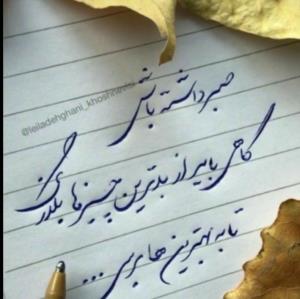 صبر داشته باش
گاهی باید از بدترین چیزها بگذری
تا به بهترین ها برسی ...
@leiladehghani_khoshnevisi